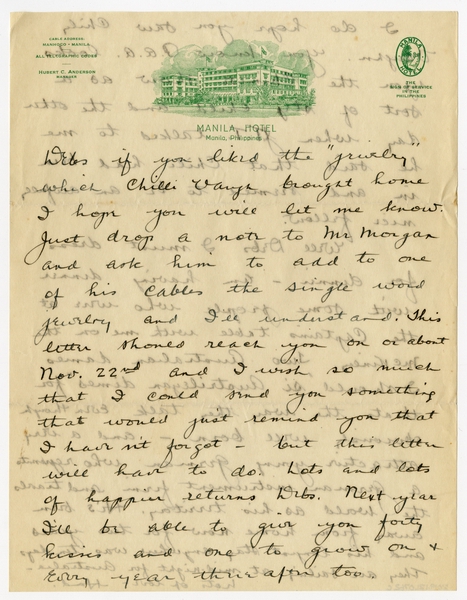 CABLE ADDRESS
MANHOCO - MANILA
ALL TELEGRAPHIC CODES
HUBERT C. ANDERSON
MANAGER
MANILA HOTEL
THE
SIGN OF SERVICE
IN THE
PHILIPPINES
MANILA HOTEL
Manila, Philippines
Debs if you liked the "jewelry"
which Chilli Vaugh brought home
I hope you will let me know.
Just drop a note to Mr Morgan
and ask him to add to one
of his cables the single word
jewelry and I'll understand. This
letter should reach you on or about
Nov. 22nd and I wish so much
that I could send you something
that would just remind you that
I haven't forgot - but this letter
will have to do. Lots and lots
of happier returns Debs. Next year
I'll be able to give you forty
kisses and one to grow on &
every year thereafter too.